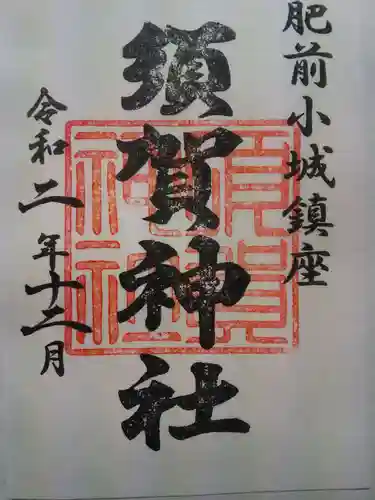 肥前小城鎮座
須賀神社
令和二年十二月
須賀
神社